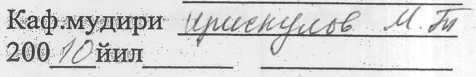 Каф.мудири Ирискулов М.Т
200 10 йил